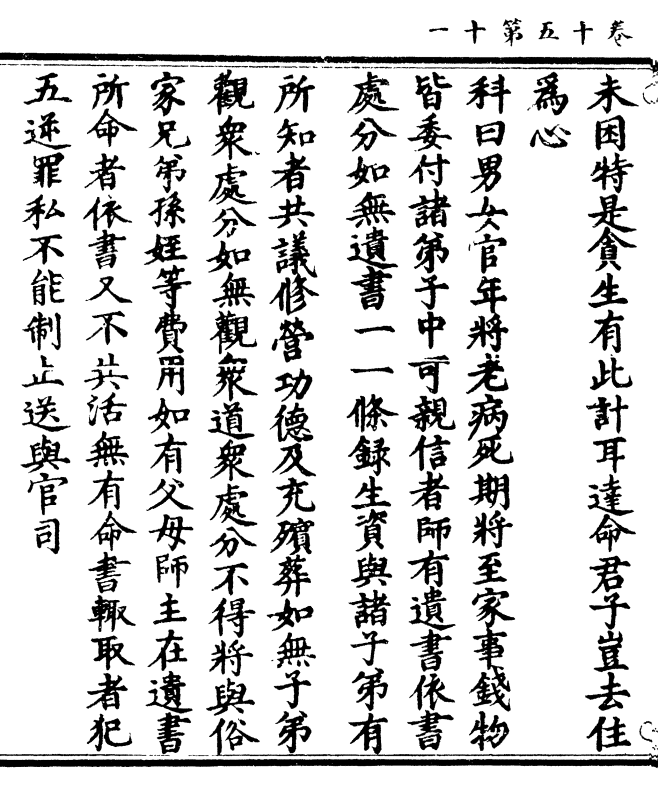 卷十五第十一
未困特是貪生有此計耳達命君子豈去住
爲心
科曰男女官年將老病死期將至家事錢物
皆委付諸弟子中可親信者師有遺書依書
處分如無遺書一一條錄生資與諸子弟有
所知者共議修營功德及充殯葬如無子弟
觀衆處分如無觀衆道衆處分不得將與俗
家兄弟孫姪等費用如有父母師主在遺書
所命者依書又不共活無有命書輙取者犯
五逆罪私不能制止送與官司